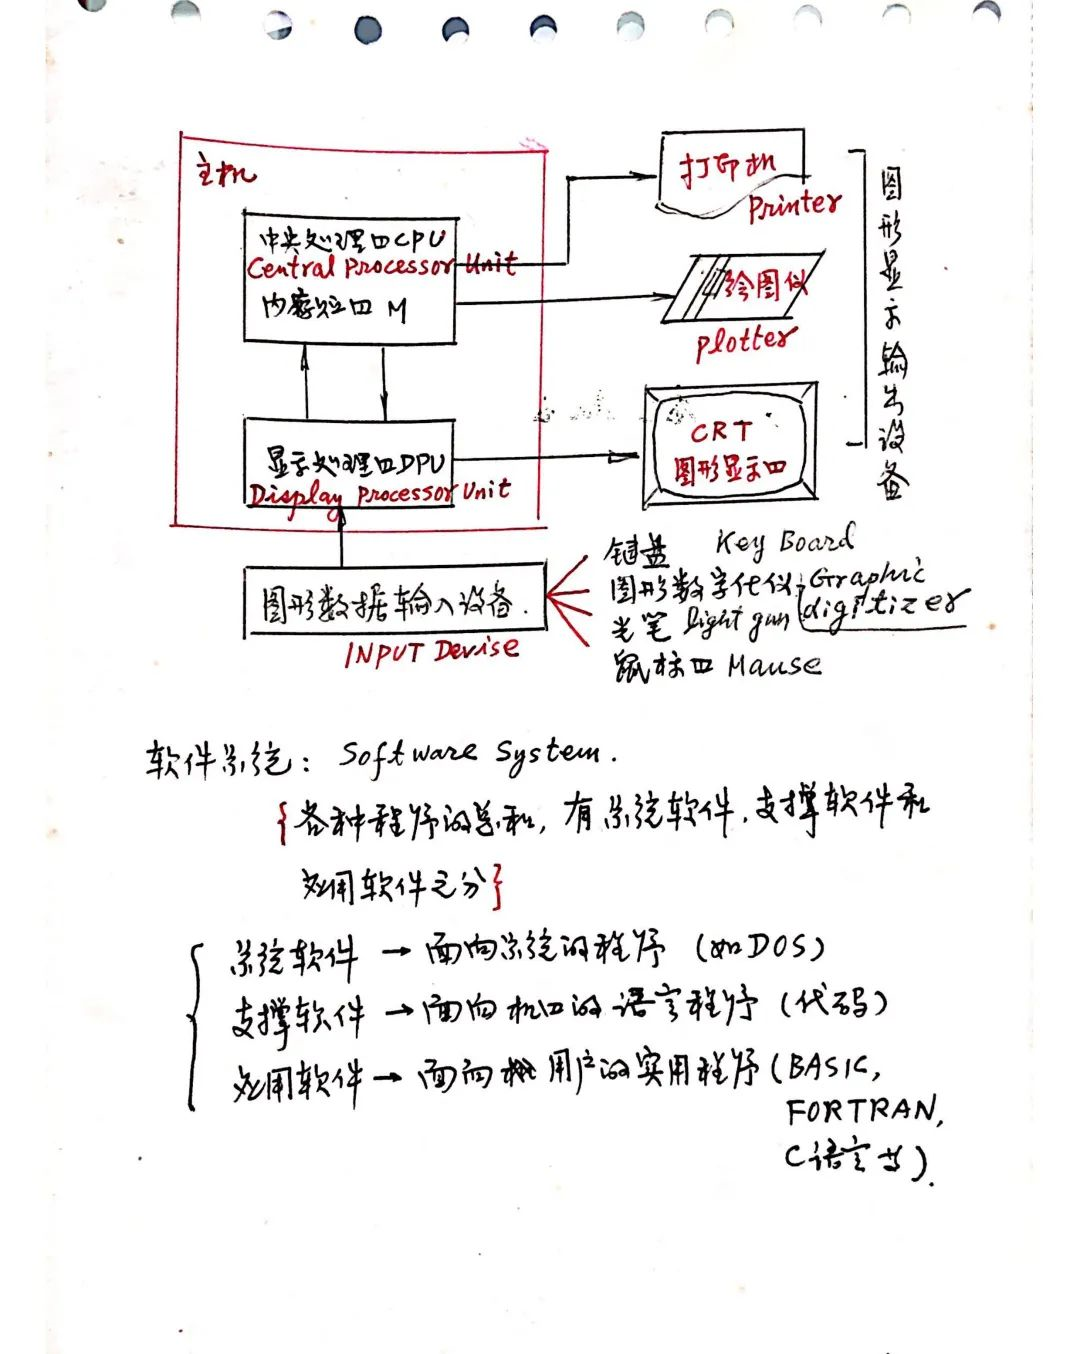 主机
中央处理口CPU
Central Processor Unit
内存贮口 M
显示处理口DPU
Display Processor Unit
图形数据输入设备.
INPUT Devise
打印机
Printer
绘图仪
Plotter
CRT
图形显示口
图形显示输出设备
键盘 Key Board
图形数字化仪 Graphic digitizer
光笔 Light gun
鼠标口 Mause
软件系统: Software System.
{各种程序的总和, 有系统软件.支撑软件和
应用软件之分}
系统软件 → 面向系统的程序 (如DOS)
支撑软件 → 面向机口的语言程序 (代码)
应用软件 → 面向用户的实用程序 (BASIC,
FORTRAN,
C语言等).